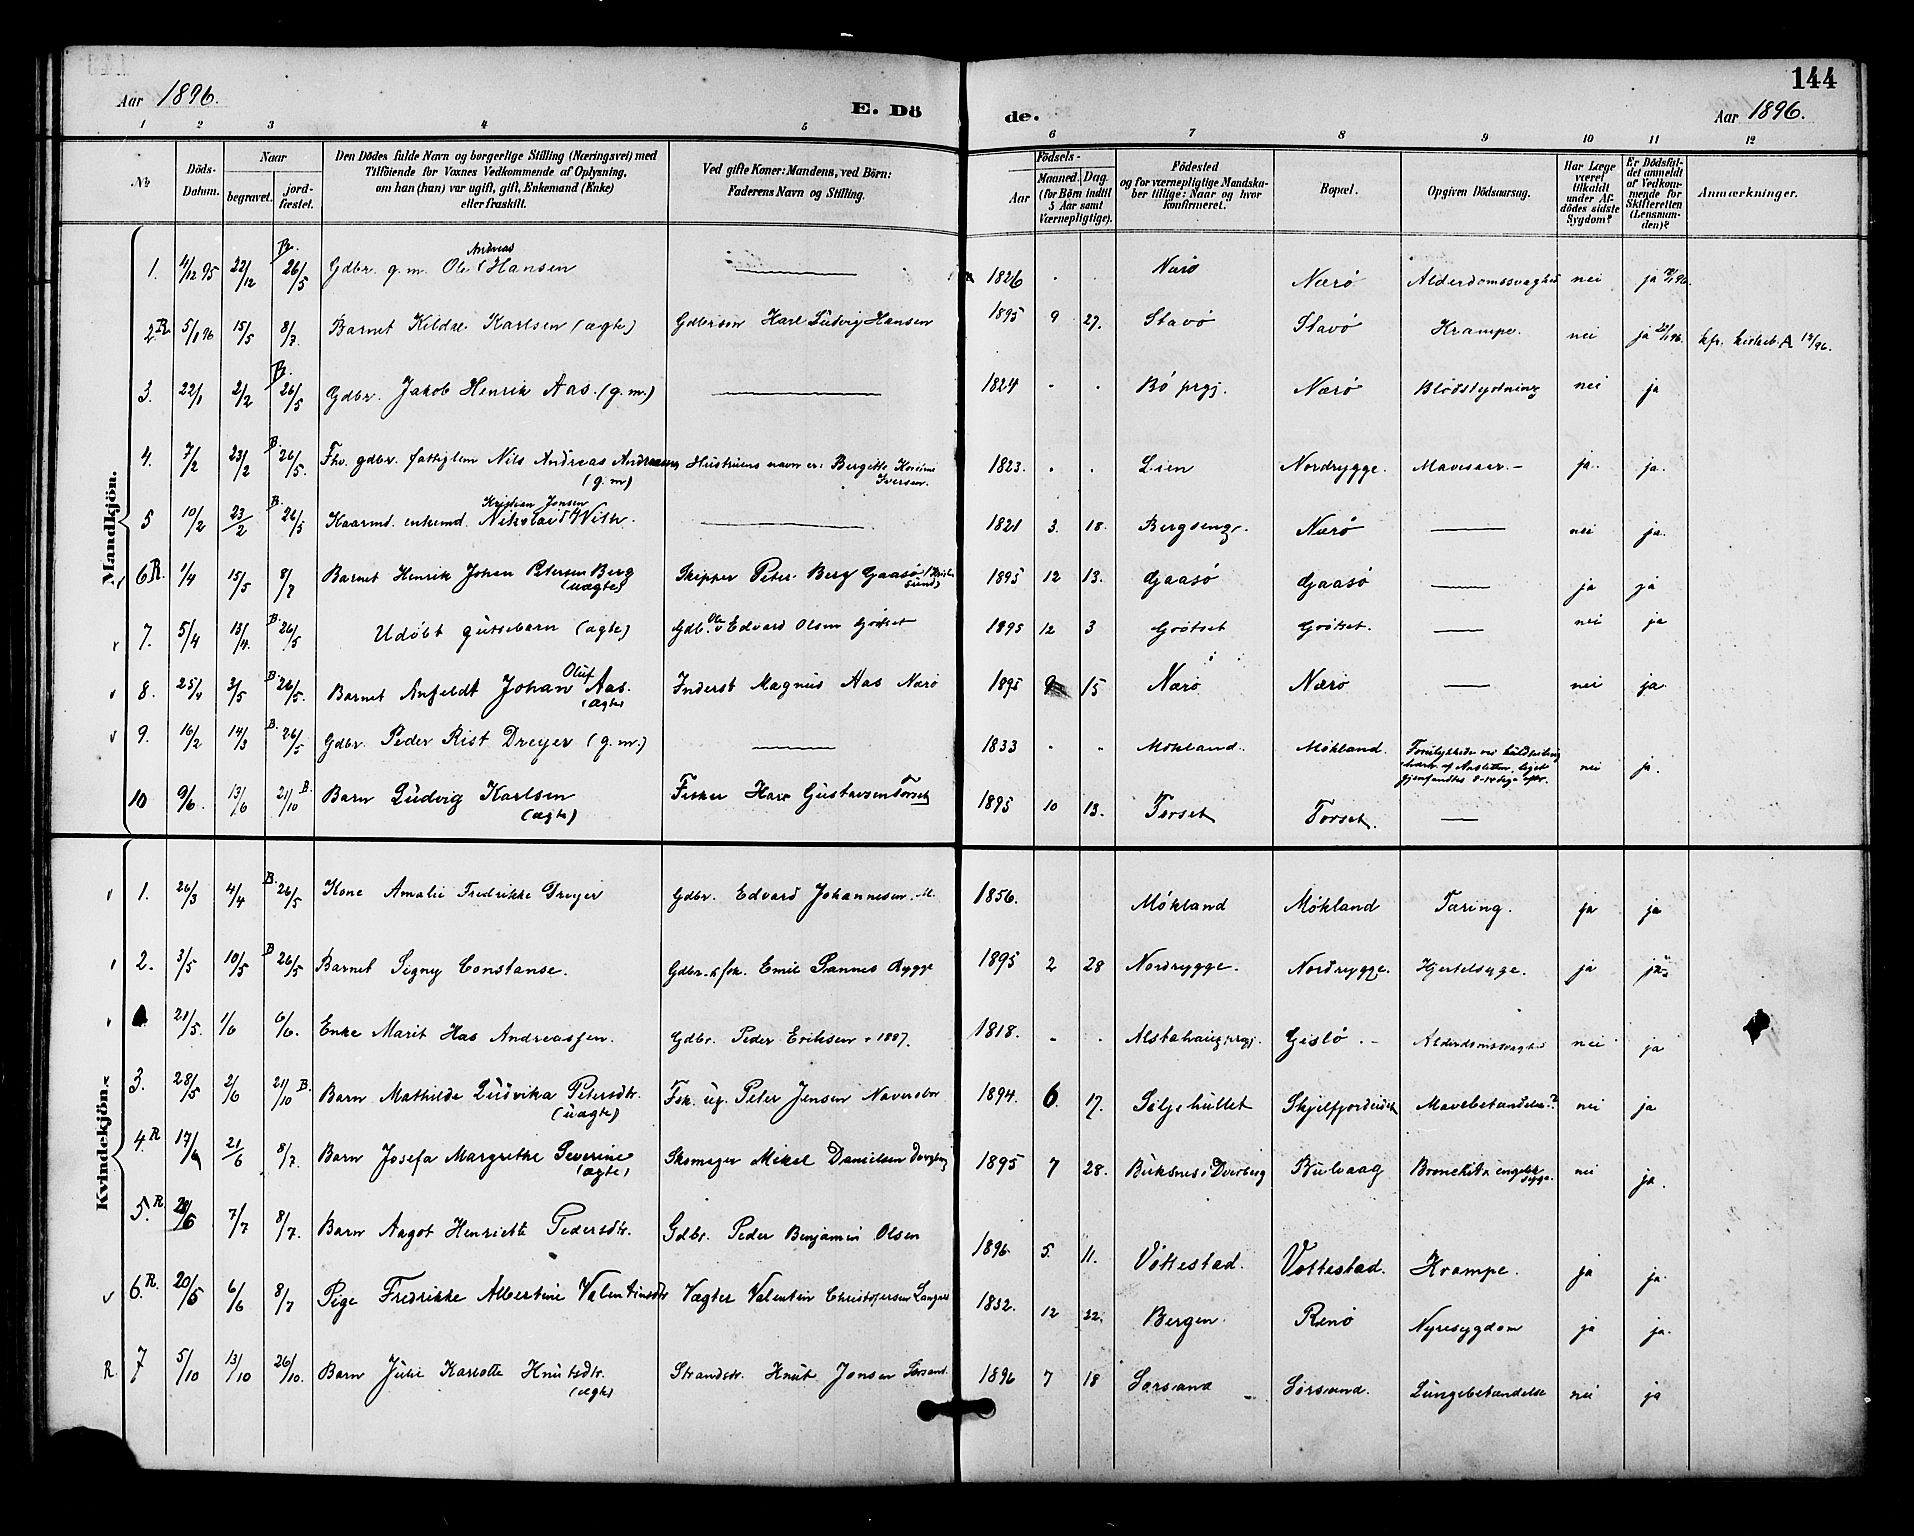 144
Aar 1896.
E. Dö de.
Aar 1896.
1 2 3 4 5 6 7 8 9 10 11 12
No
Döds-Datum.
Naar
begravet.
jord-fæstet.
Den Dödes fulde Navn og borgerlige Stilling (Næringsvei) med
Tilföiende for Voxnes Vedkommende af Oplysning,
om han (hun) var ugift, gift, Enkemand (Enke)
eller fraskilt.
Ved gifte Koner: Mandens, ved Börn:
Faderens Navn og Stilling.
Födsels-
Aar
Maaned. Dag.
(for Börn indtil
5 Aar samt
Værnepligtige).
Födested
og for værnepligtige Mandska-
ber tillige: Naar og hvor
konfirmeret.
Bopæl.
Opgiven Dödsaarsag.
Har Læge
været
tilkaldt
under Af-
dödes sidste
Sygdom?
Er Dödsfal-
det anmeldt
af Vedkom-
mende for
Skifteretten
(Lensman-
den)?
Anmærkninger.
Mandkjön.
1. 4/12 95 22/12 B. 26/5 Gdbr. g.m. Ole Andreas Hansen 1826 Nærø Nærø Alderdomssvaghed nei ja
2. R 5/1 96 15/5 8/7 Barnet Kildal Karlsen (ægte) Gdbrsøn Karl Ludvig Hansen 1895 9 27. Stavø Stavø Krampe. nei ja
3. 22/1 2/2 B. 26/5 Gdbr. Jakob Henrik Aas. (g.m.) 1824 Bø prgj. Nærø Blodstyrtning nei ja
4. 7/2 23/2 B. 26/5. Fhv. gdbr. fattiglem Nils Andreas Andreassen (g.m) Hustruens navn er: Bergitte Iversen. 1823. Lien Nordrygge. Mavesaar.- ja. ja.
5 10/2 23/2 B. 26/5 Kaarmd. enkemd. Nikolai Kristian Jonsen With. 1821 3. 18. Bergseng. Nærø nei ja.
6 R. 1/4 15/5 8/7 Barnet Henrik Johan Petersen Berg (uægte) Skipper Peter Berg Gaasø 1895 12 13. Gaasø Gaasø ja ja
7. 5/4 13/4. B. 26/5 Udøbt guttebarn (ægte) Gdb. Ole Edvard Olsen Grøtset 1895 12 3 Grøtset Grøtset. nei ja
8. 25/4 3/5 B. 26/5. Barnet Anfeldt Johan Oluf Aas. (ægte) Inderst Magnus Aas Nærø 1895 15 Nærø Nærø nei ja.
9. 16/2 14/3 B. 26/5 Gdbr. Peder Rist Dreyer (g.m.) 1833 Møkland. Møkland. nei ja.
10 9/6. 13/6 21/10 B. Barn Ludvig Karlsen (ægte) Fisker Gustavsen Forset 1895 10 13. Forset Forset.
Kvindekjön.
1. 26/3 4/4 B. 26/5 Kone Amalie Fredrikke Dreyer Gdbr. Edvard Johannesen M. 1856. Møkland Møkland Tæring. ja ja
2. 3/5 10/5 B 26/5 Barnet Signy Constanse. Gdbr. & fsk. Emil Sannes Rygge 1895 2 28 Nordrygge. Nordrygge. Hjertesyge. ja ja
21/5. 1/6 6/6. Enke Marit Has Andreassen. Gdbr. Peder Eriksen + 1887. 1818. Alstahaug prgj. Gislø. Alderdomssvaghed nei ja
3. 28/5 2/6 21/10 B. Barn Mathilde Ludvika Petersdtr. (uægte) Fsk. ug. Peter Jensen 1894. 6. 17. Siljehullet Skjelfjordeidet Mavebetændelse? nei ja
4. R 17/6 21/6 8/7. Barn Josefa Margrethe Severine (ægte) Skomager Mikal Danielsen 1895 7 28. Buksnes, Dverberg Bulvaag Bronchit & engelsk syge. nei ja.
5. R. 28/6 7/7 8/7. Barn Aagot Henriette Pedersdtr. Gdbr. Peder Benjamin Olsen 1896 5. 11. Vottestad. Vottestad. Krampe. ja ja.
6. R. 20/5 6/6 8/7 Pige Fredrikke Albertine Valentinsdtr Vægter Valentin Christofersen 1832. 12 22. Bergen. Renø Nyresygdom ja ja.
R. 7 5/10 13/10 26/10. Barn Julie Karlotte Knutsdtr. (ægte) Strandsdr. Knut Jonsen Sørsand. 1896 7 18 Sørsand Sørsand. Lungebetændelse nei ja